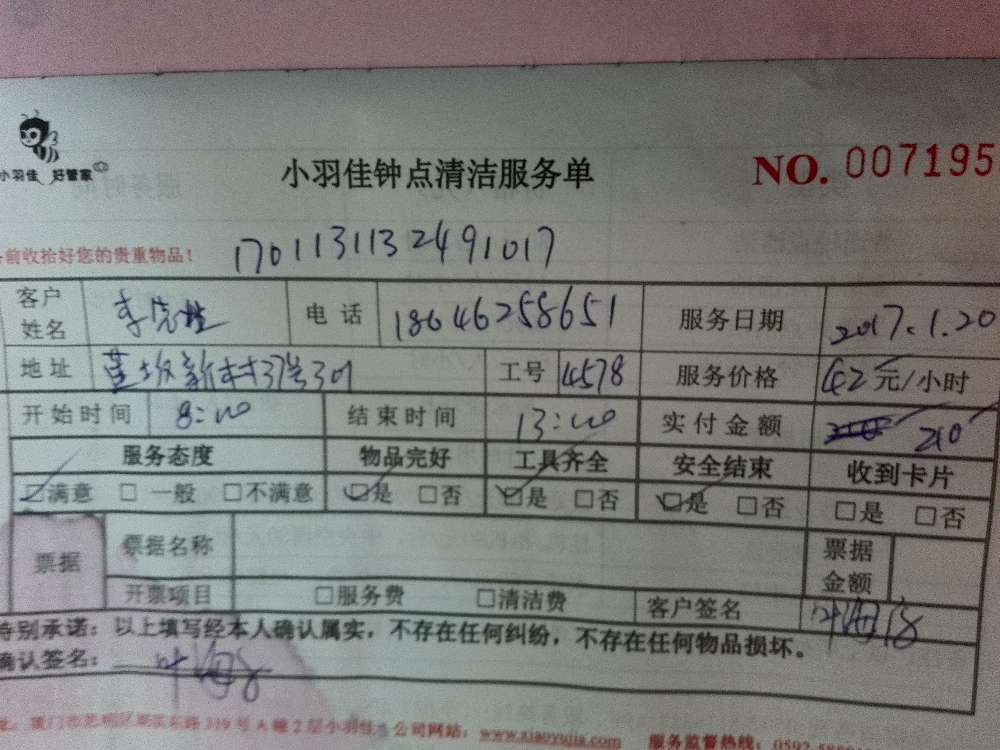 小羽佳 好管家
小羽佳钟点清洁服务单
NO. 007195
前收拾好您的贵重物品！
1701131132491017
客户姓名 电话 18646258651 服务日期 2017.1.20
地址 莲坂新村 工号 4578 服务价格 42元/小时
开始时间 8:00 结束时间 13:00 实付金额 210
服务态度 物品完好 工具齐全 安全结束 收到卡片
☑满意 □一般 □不满意 ☑是 □否 ☑是 □否 ☑是 □否 □是 □否
票据 票据名称 票据金额
开票项目 □服务费 □清洁费 客户签名
特别承诺：以上填写经本人确认属实，不存在任何纠纷，不存在任何物品损坏。
确认签名：
厦门市思明区 319号A幢2层小羽佳 公司网站：www.xiaoyujia.com 服务监督热线：0592-